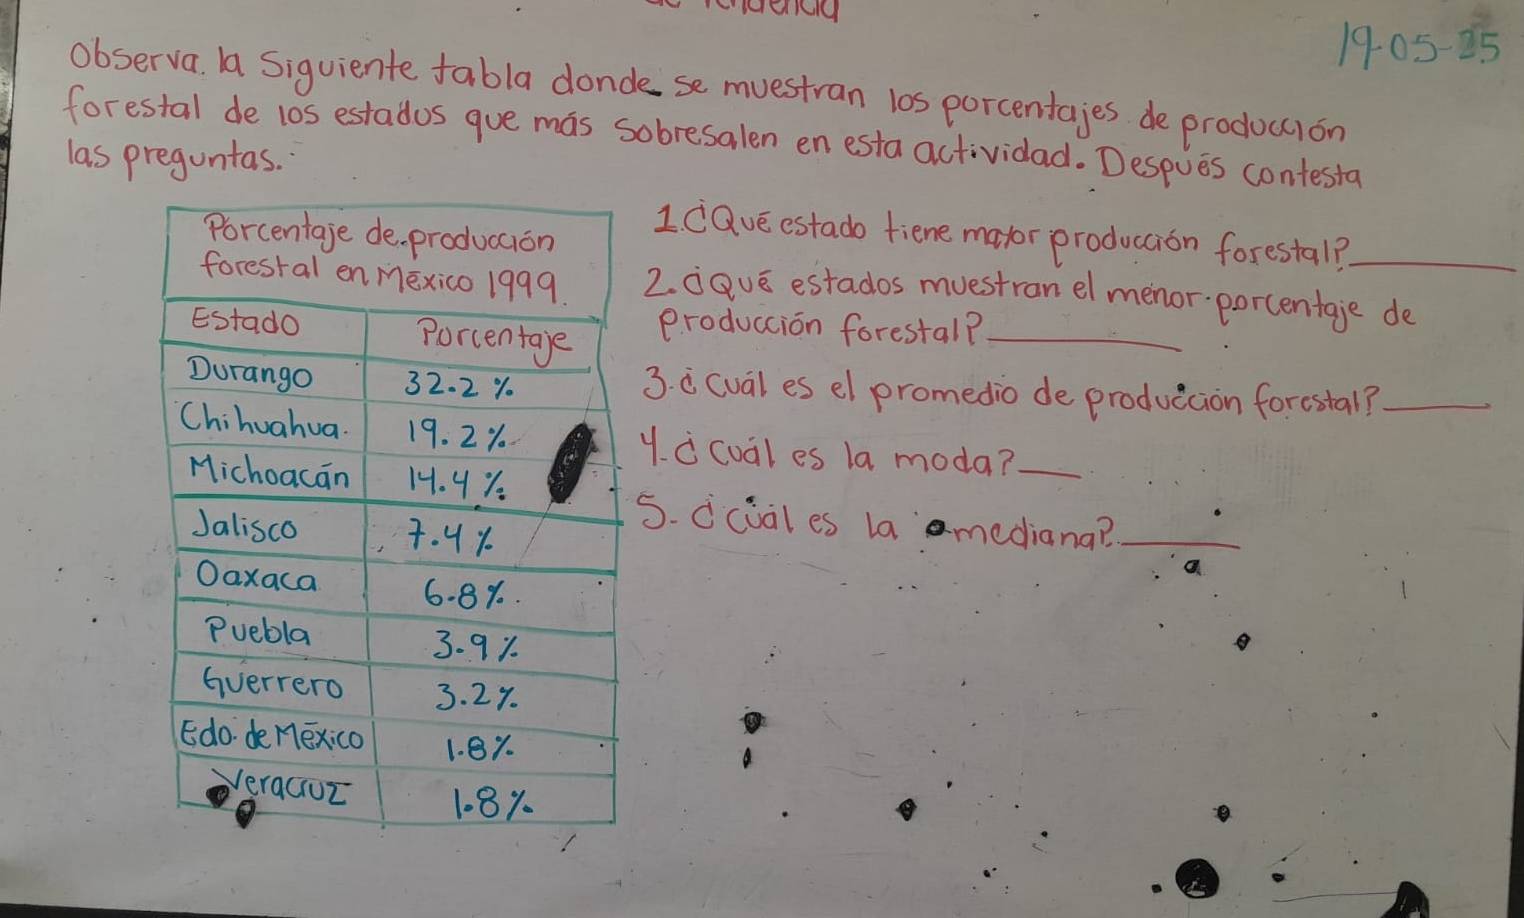 19-05-25
Observa la siguiente tabla donde se muestran los porcentajes de producción
forestal de los estados que más sobresalen en esta actividad. Después contesta
las preguntas.
Porcentaje de producción
forestal en México 1999.
Estado Porcentaje
Durango 32.2%
Chihuahua 19.2%
Michoacán 14.4%
Jalisco 7.4%
Oaxaca 6.8%
Puebla 3.9%
Guerrero 3.2%
Edo. de México 1.8%
Veracruz 1.8%
1. ¿Qué estado tiene mayor producción forestal?
2. ¿Qué estados muestran el menor porcentaje de
producción forestal?
3. ¿Cuál es el promedio de producción forestal?
4. ¿Cuál es la moda?
5. ¿Cuál es la mediana?